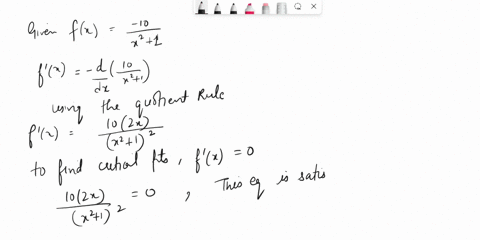 Given f(x) = -10 / x²+1
f'(x) = -d/dx (10 / x²+1)
using the quotient Rule
f'(x) = 10(2x) / (x²+1)²
to find critical pts, f'(x) = 0
10(2x) / (x²+1)² = 0 , This eq is satis